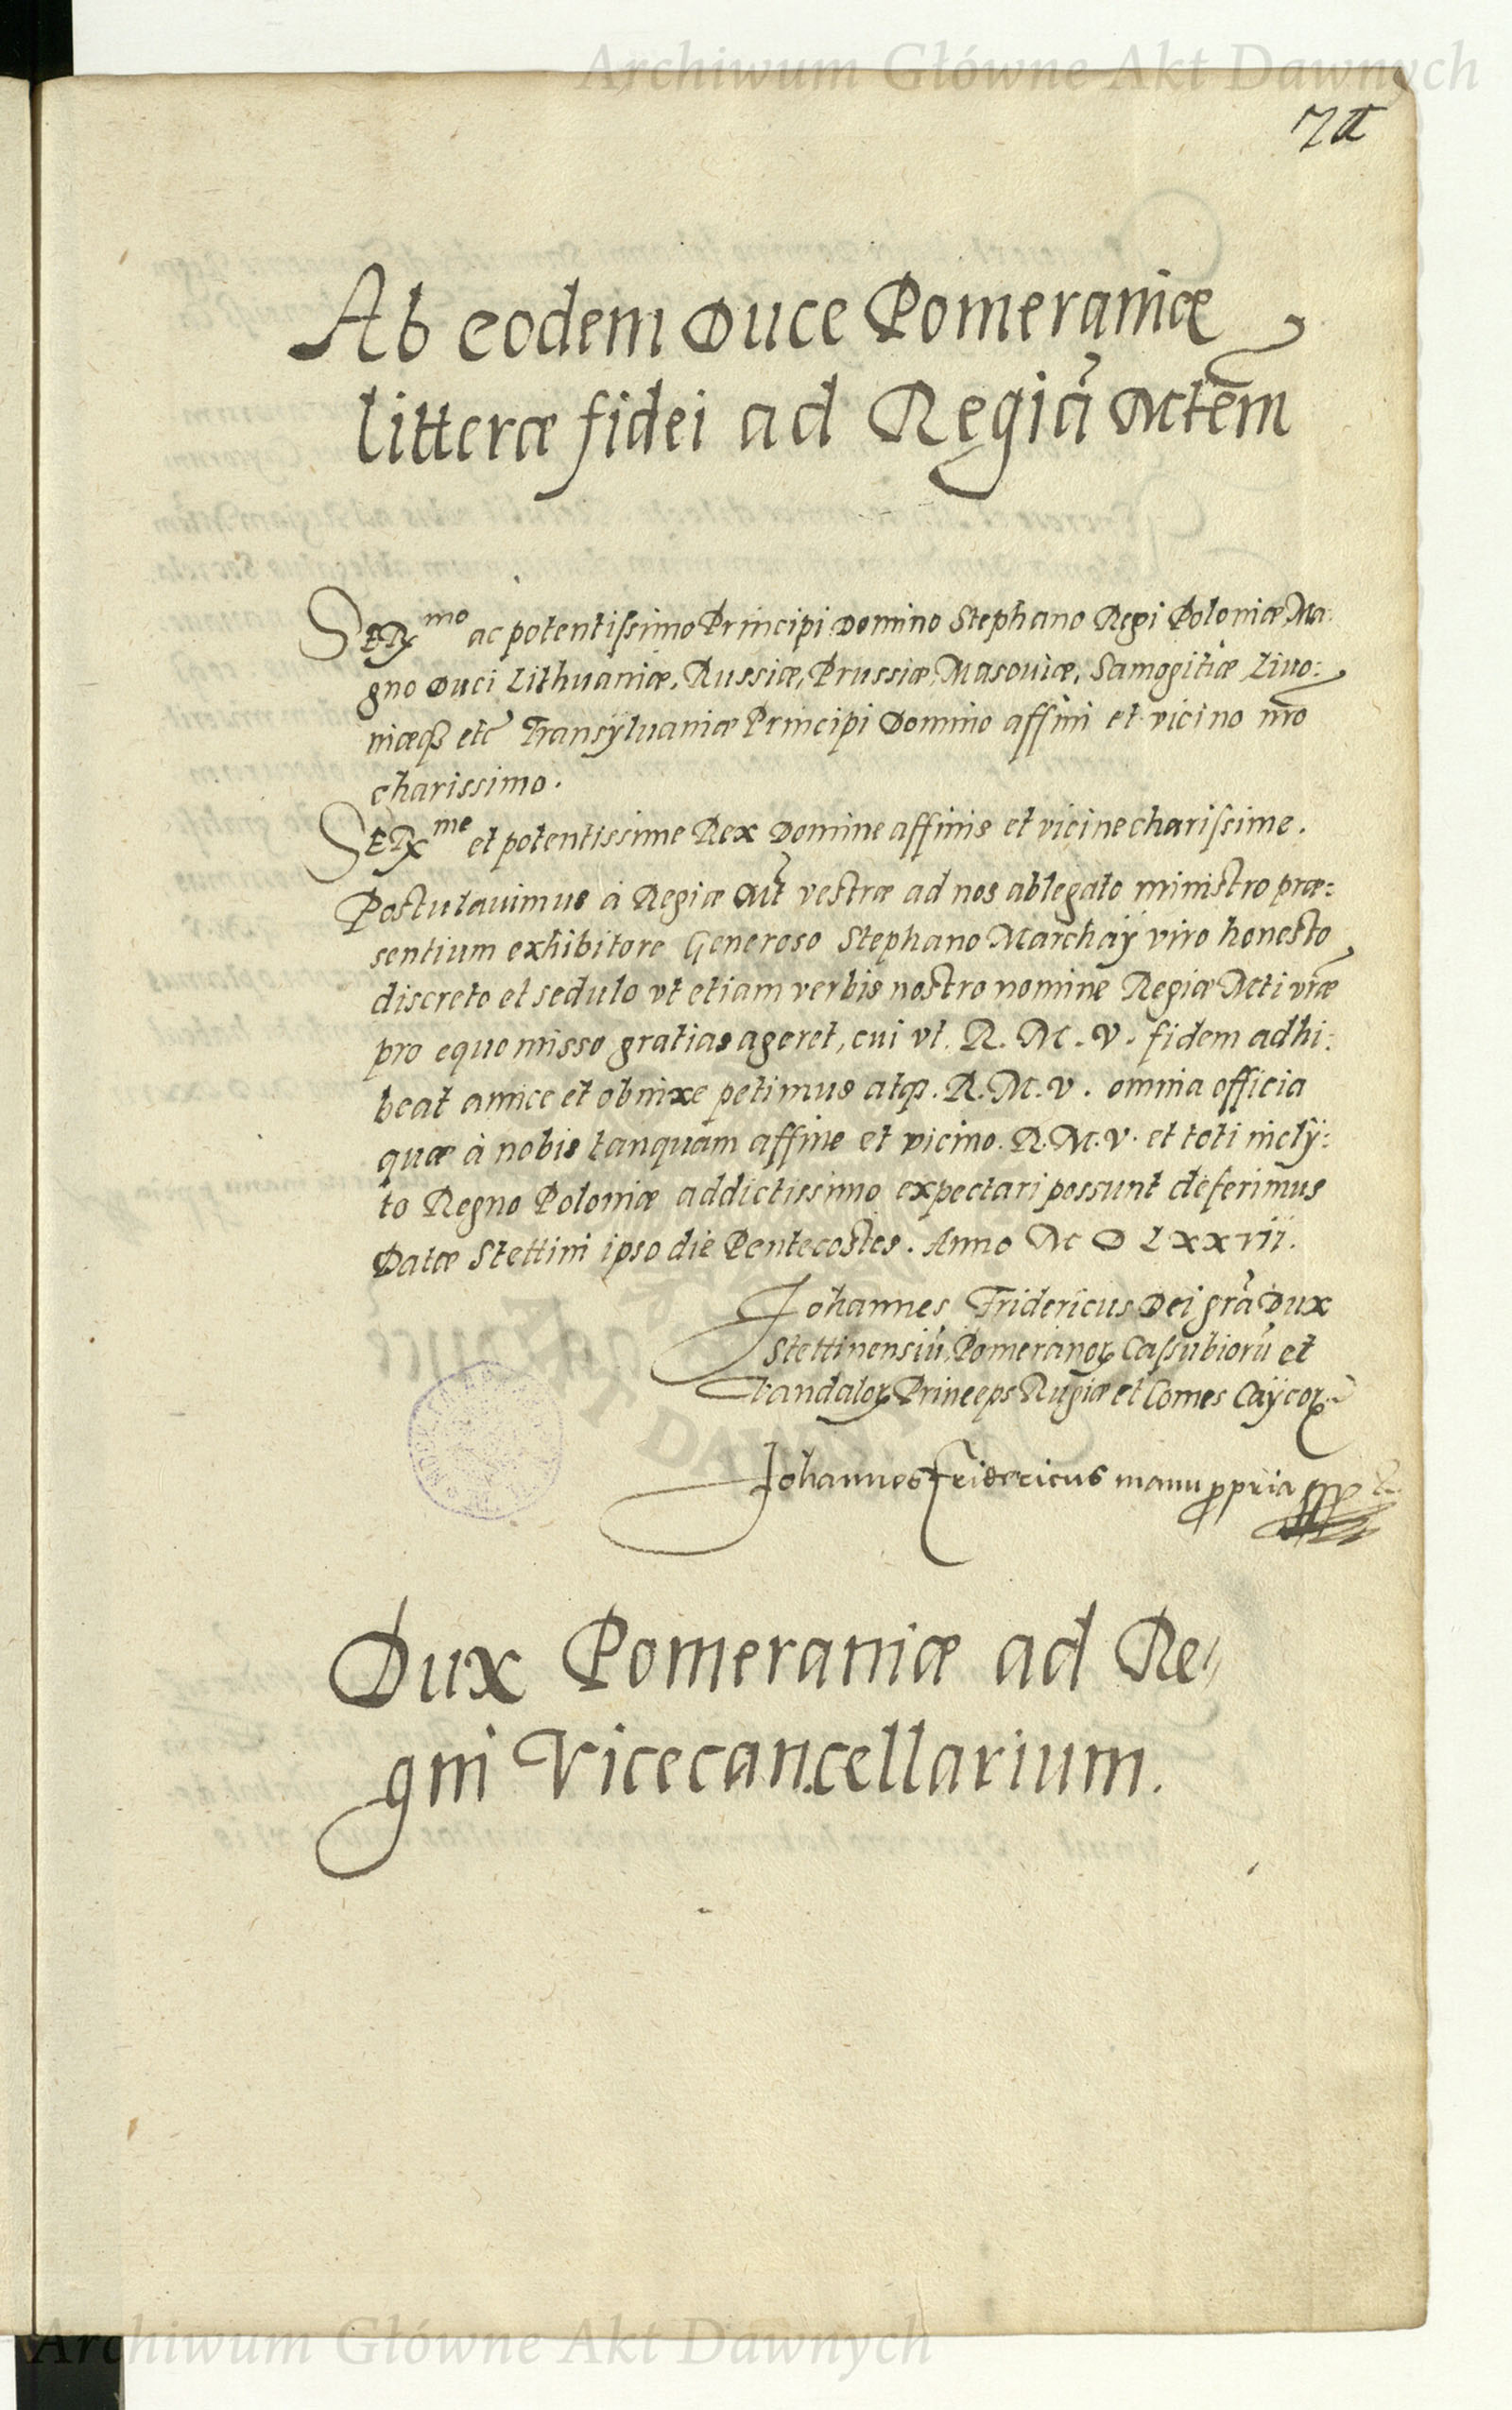 Archiwum Główne Akt Dawnych
Ab eodem Duce Pomeraniæ
litteræ fidei ad Regiã Mtem
SERmo ac potentissimo Principi Domino Stephano Regi Poloniæ, Ma:
gno Duci Lithuaniæ, Russiæ, Prussiæ, Masouiæ, Samogitiæ Liuo:
niæq3 etc Transÿluaniæ Principi Domino affini et vicino nro
charissimo.
SERme et potentissime Rex Domine affinis et vicine charissime.
Postulauimus à Regiæ Mt vestræ ad nos ablegato ministro præ:
sentium exhibitore Generoso Stephano Marchaÿ viro honesto
discreto et sedulo vt etiam verbis nostro nomine Regiæ Mti vræ
pro equo misso gratias ageret, cui vt R. M. V. fidem adhi:
beat amice et obnixe petimus atq3. R. M. V. omnia officia
quæ à nobis tanquam affine et vicino R. M. V. et toti incly:
to Regno Poloniæ addictissimo expectari possunt deferimus
Datæ Stettini ipso die Pentecostes. Anno M D LXXVII.
Johannes Fridericus Dei grã Dux
Stettinensiũ, Pomeranoꝝ Cassubiorũ et
Vandaloꝝ Princeps Rugiæ et Comes Caÿcoꝝ
Johannes Fridericus manu ppria
Dux Pomeraniæ ad Re„
gni Vicecancellarium.
Archiwum Główne Akt Dawnych